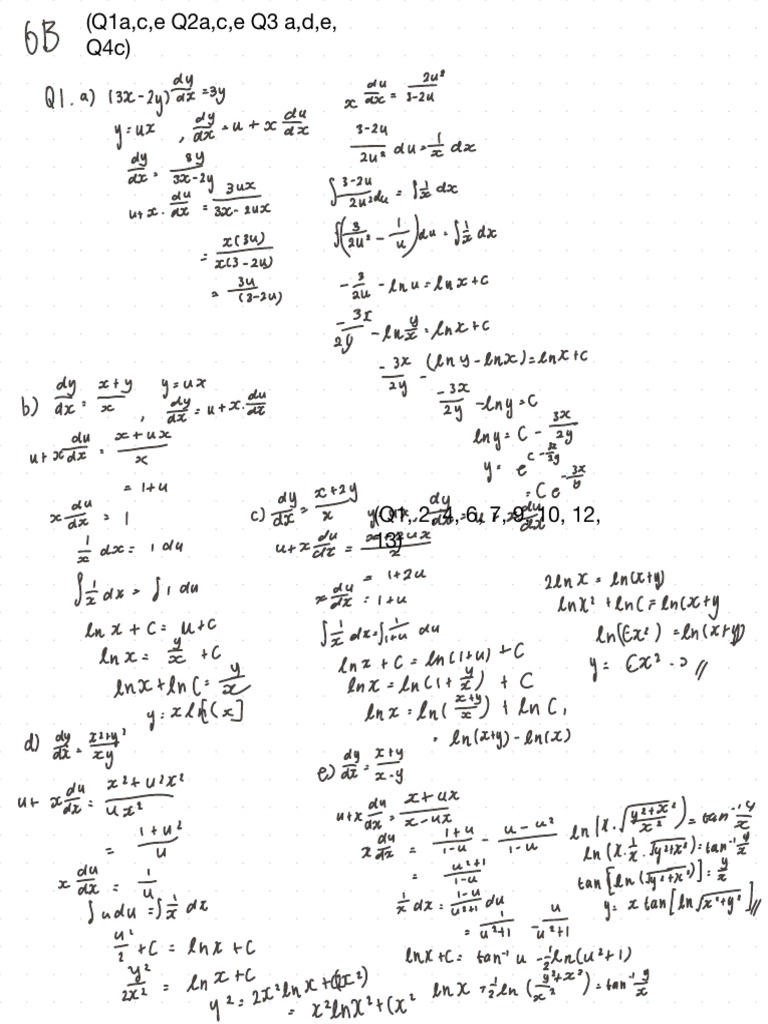 6B (Q1a,c,e Q2a,c,e Q3 a,d,e,
Q4c)
Q1. a) (3x-2y) dy/dx = 3y
y = ux , dy/dx = u + x du/dx
dy/dx = 3y/(3x-2y)
u+x. du/dx = 3ux/(3x-2ux)
= x(3u)/(x(3-2u))
= 3u/(3-2u)
x du/dx = 2u²/(3-2u)
(3-2u)/(2u²) du = 1/x dx
∫ (3-2u)/(2u²) du = ∫ 1/x dx
∫(3/(2u²) - 1/u) du = ∫ 1/x dx
-3/(2u) - ln u = ln x + C
-3x/(2y) - ln y/x = ln x + C
-3x/(2y) - (ln y - ln x) = ln x + C
-3x/(2y) - ln y = C
ln y = C - 3x/(2y)
y = e^(C - 3x/(2y))
b) dy/dx = (x+y)/x , y = ux
dy/dx = u + x. du/dx
u + x du/dx = (x+ux)/x
= 1+u
x du/dx = 1
1/x dx = 1 du
∫ 1/x dx = ∫ 1 du
ln x + C = u + C
ln x = y/x + C
ln x + ln C = y/x
y = x ln[Cx]
c) dy/dx = (x+2y)/x
(Q1, 2, 4, 6, 7, 9, 10, 12,
13)
u + x du/dx =
= 1+2u
x du/dx = 1+u
∫ 1/x dx = ∫ 1/(1+u) du
ln x + C = ln(1+u) + C
ln x = ln(1 + y/x) + C
ln x = ln((x+y)/x) + ln C,
= ln(x+y) - ln(x)
2 ln x = ln(x+y)
ln x² + ln C = ln(x+y
ln(Cx²) = ln(x+y)
y = Cx² - x //
d) dy/dx = (x²+y²)/xy
u + x du/dx = (x²+u²x²)/(ux²)
= (1+u²)/u
x du/dx = 1/u
∫ u du = ∫ 1/x dx
u²/2 + C = ln x + C
y²/2x² = ln x + C
y² = 2x² ln x + (2x²)
= x² ln x² + Cx²
e) dy/dx = (x+y)/(x-y)
u + x du/dx = (x+ux)/(x-ux)
x du/dx = (1+u)/(1-u) - (u-u²)/(1-u)
= (u²+1)/(1-u)
1/x dx = (1-u)/(u²+1) du
= 1/(u²+1) - u/(u²+1)
ln x + C = tan⁻¹ u - ½ ln(u²+1)
ln x + ½ ln((y²+x²)/x²) = tan⁻¹ y/x
ln(x.√((y²+x²)/x²)) = tan⁻¹ y/x
ln(x. 1/x. √(y²+x²)) = tan⁻¹ y/x
tan[ln(√(y²+x²))] = y/x
y = x tan[ln √(x²+y²)] //